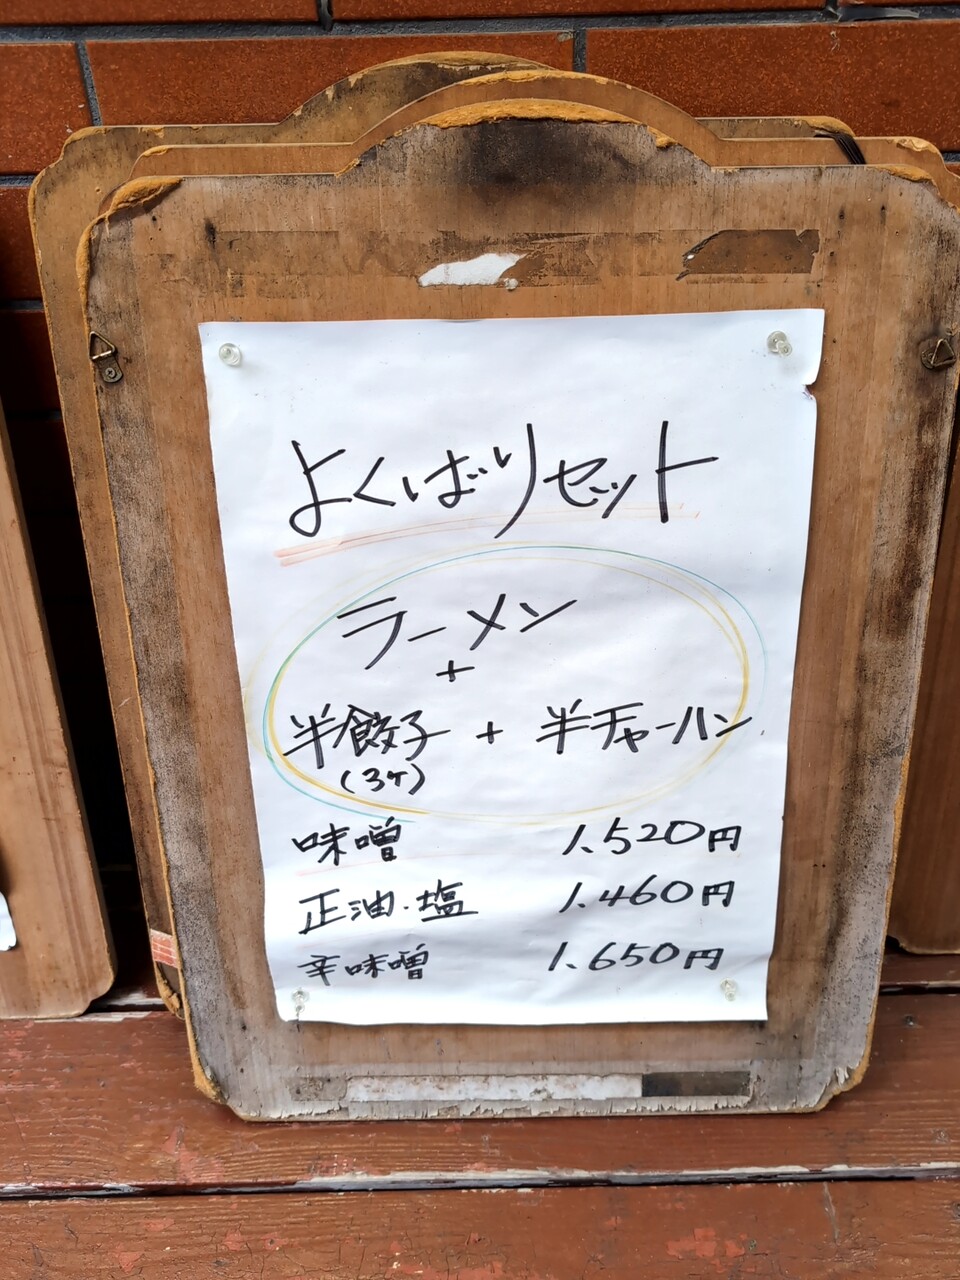 よくばりセット
ラーメン
+
半餃子 + 半チャーハン
(3ケ)
味噌 1.520円
正油・塩 1.460円
辛味噌 1.650円